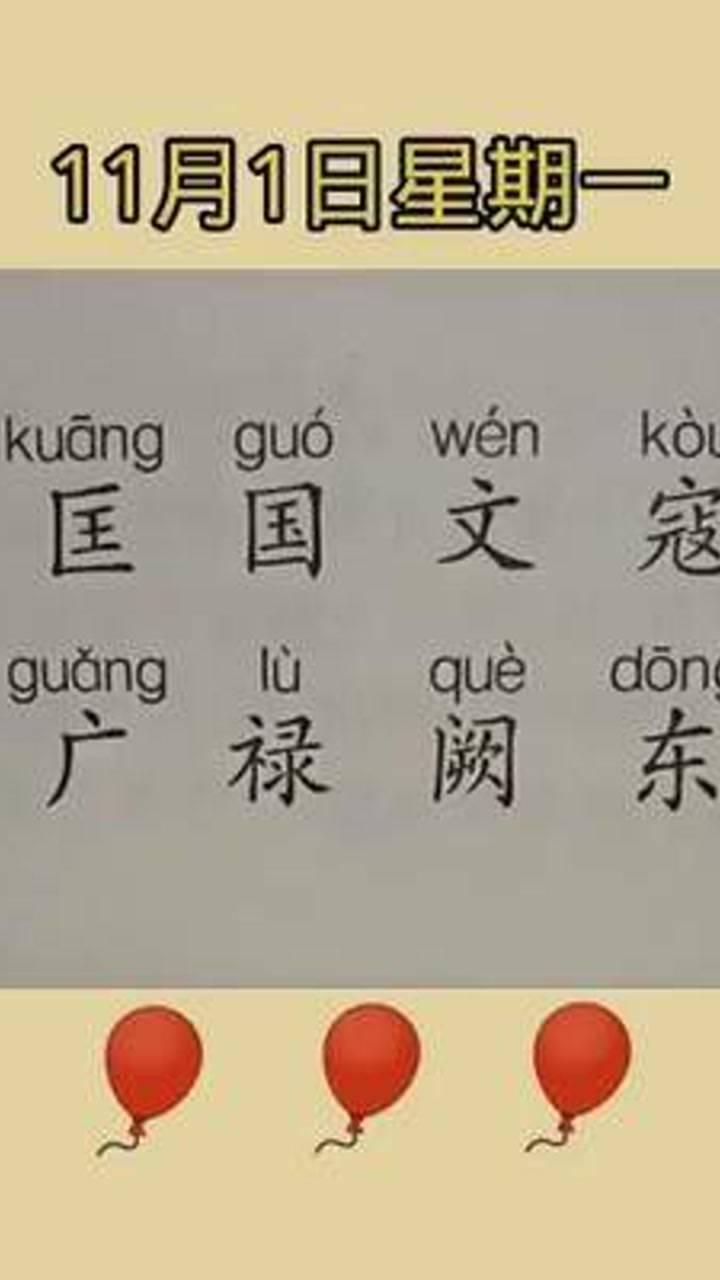 11月1日星期一
kuāng guó wén kòu
匡 国 文 寇
guǎng lù què dōng
广 禄 阙 东